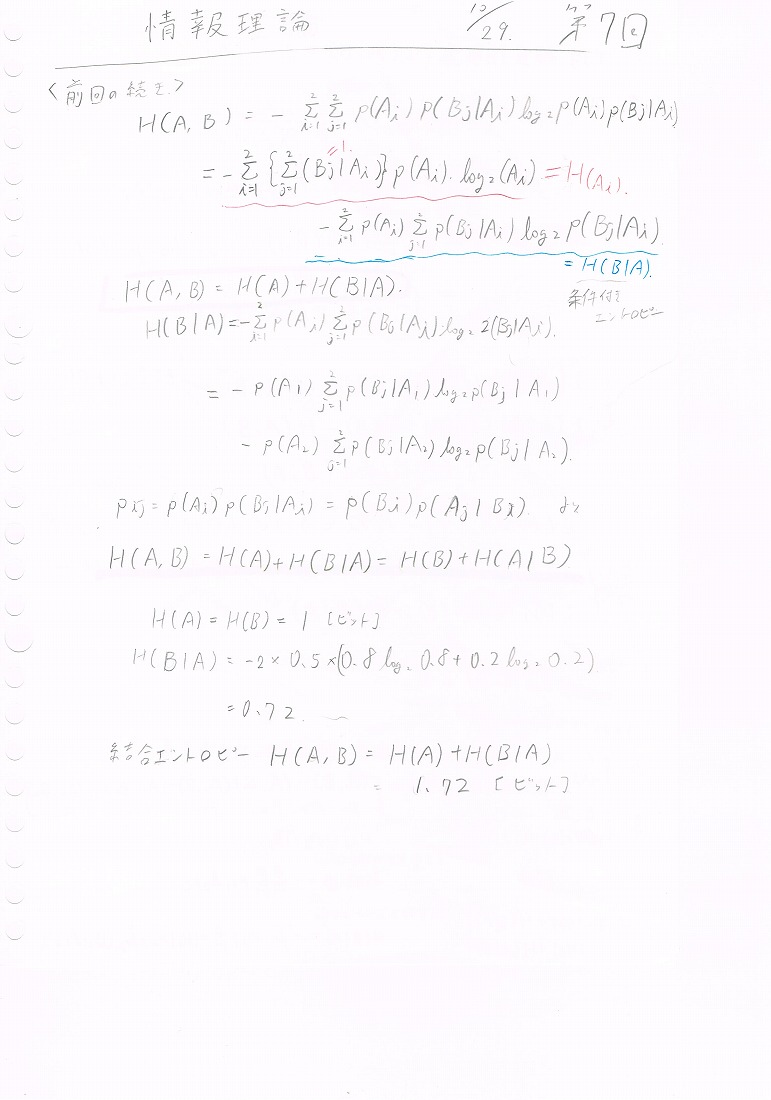 情報理論 10/29. 第7回
〈前回の続き.〉
H(A, B) = - Σ_{i=1}^{2} Σ_{j=1}^{2} P(Ai) P(Bj|Ai) log₂ P(Ai) P(Bj|Ai)
= - Σ_{i=1}^{2} {Σ_{j=1}^{2} (Bj|Ai)} P(Ai). log₂ (Ai) = H(Ai).
〃1.
- Σ_{i=1}^{2} P(Ai) Σ_{j=1}^{2} P(Bj|Ai) log₂ P(Bj|Ai)
= H(B|A).
条件付き
エントロピー
H(A, B) = H(A) + H(B|A).
H(B|A) = - Σ_{i=1}^{2} P(Ai) Σ_{j=1}^{2} P(Bj|Ai)·log₂ 2(Bj|Ai).
= - P(A1) Σ_{j=1}^{2} P(Bj|A1) log₂ P(Bj|A1)
- P(A2) Σ_{j=1}^{2} P(Bj|A2) log₂ P(Bj|A2).
Pij = P(Ai) P(Bj|Ai) = P(Bi) P(Aj|Bi). より
H(A, B) = H(A) + H(B|A) = H(B) + H(A|B)
H(A) = H(B) = 1 [ビット]
H(B|A) = -2 × 0.5 × (0.8 log₂ 0.8 + 0.2 log₂ 0.2)
= 0.72
結合エントロピー H(A, B) = H(A) + H(B|A)
= 1.72 [ビット]